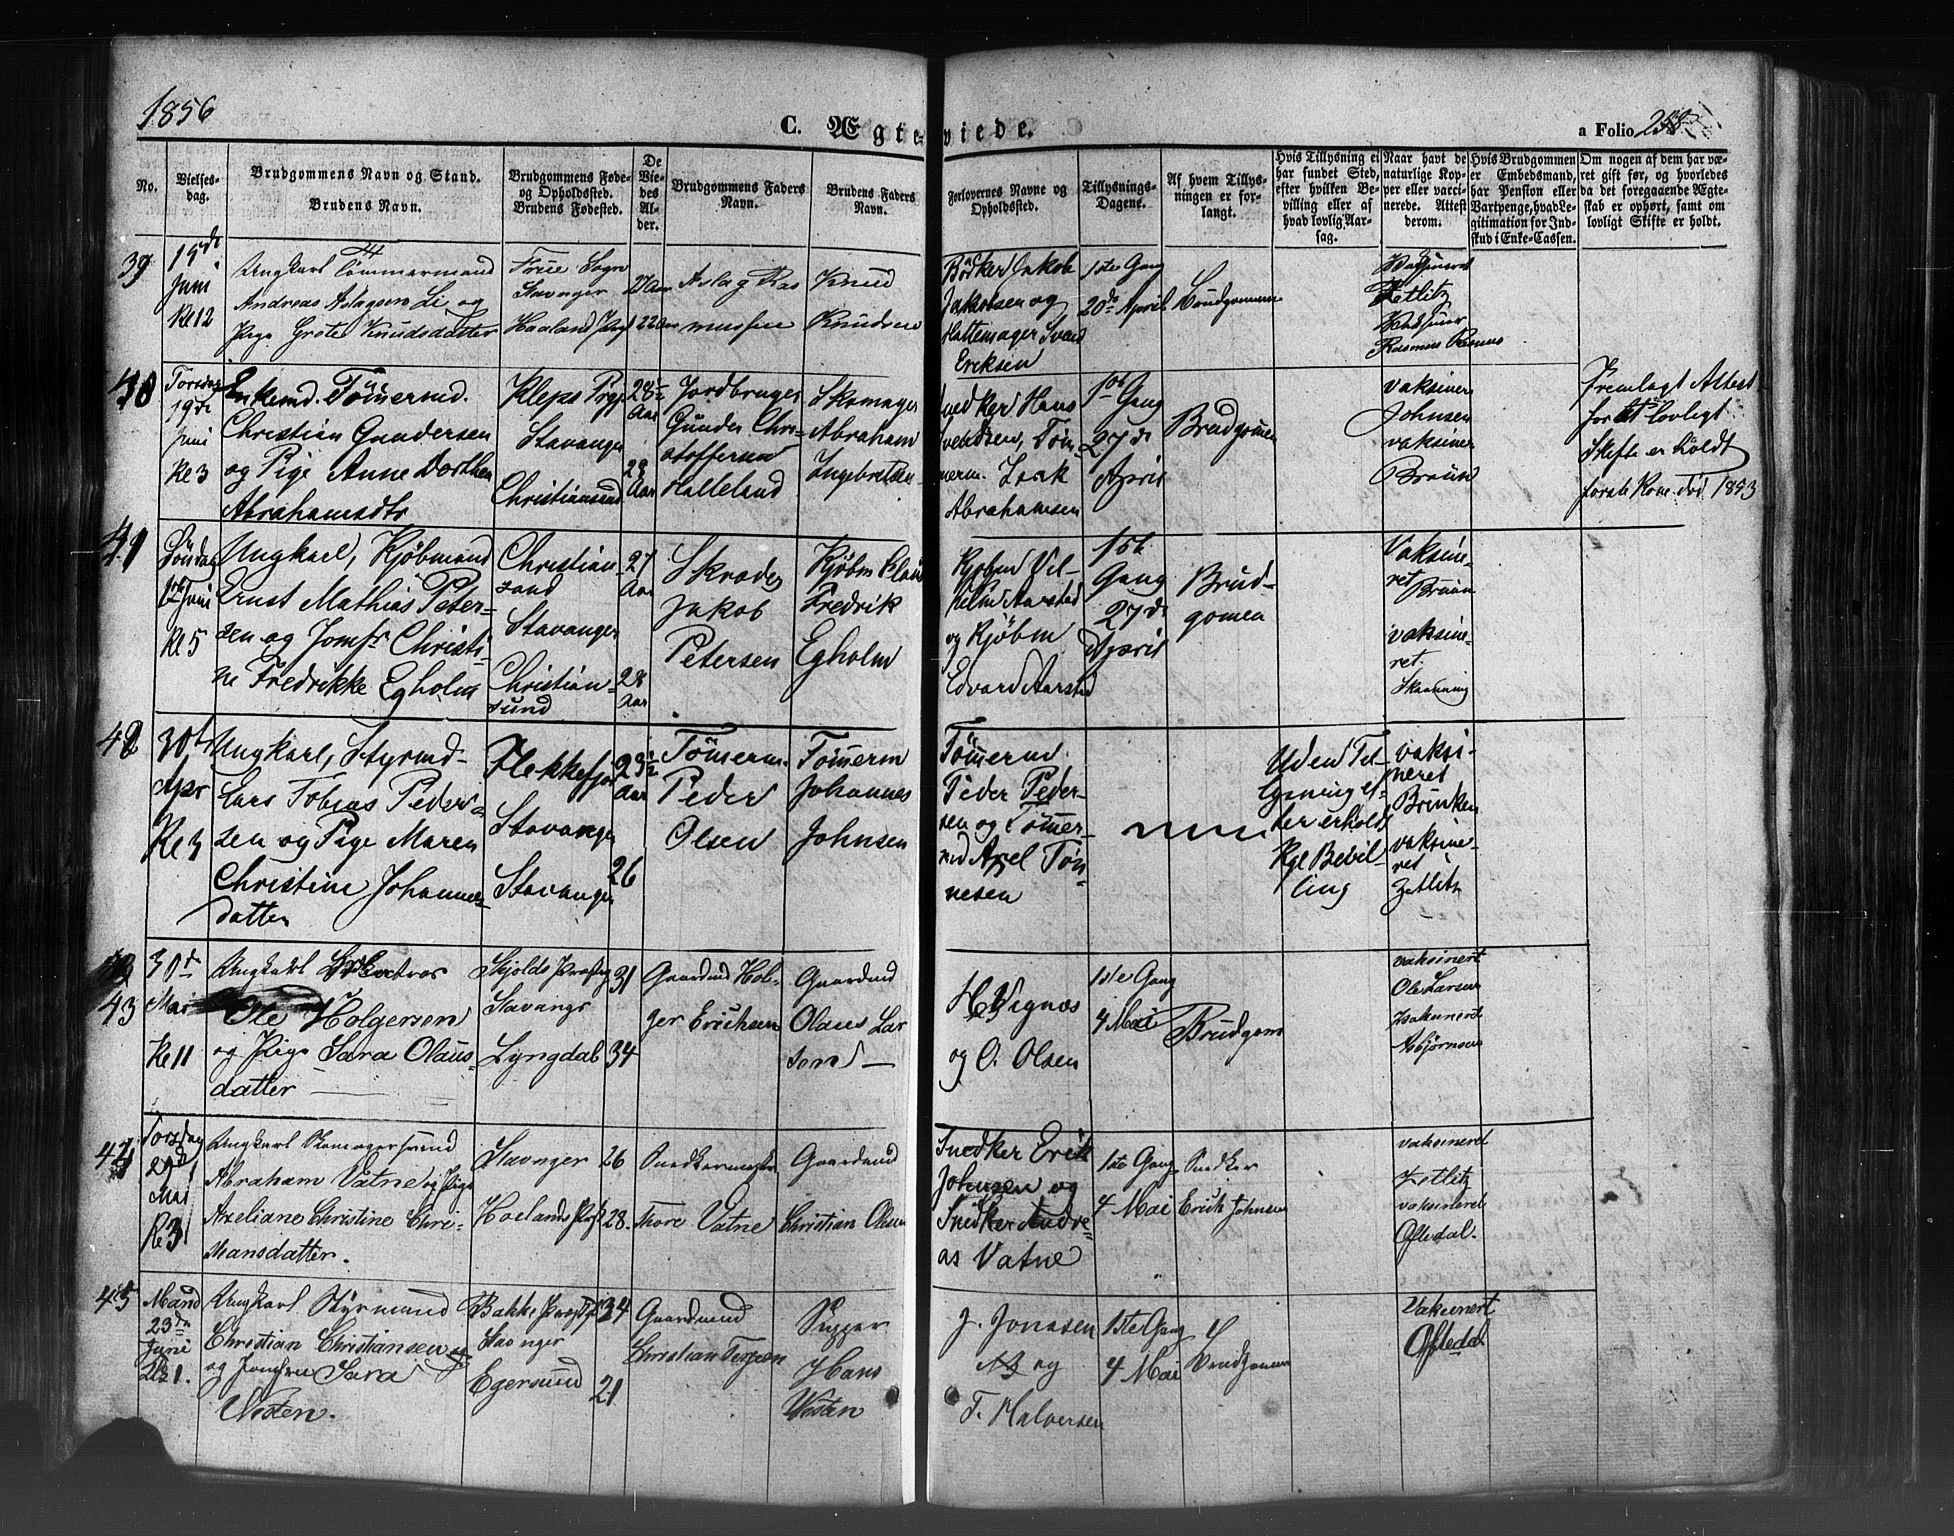 1856
C. Ægteviede.
a Folio 258
No.
Vielses-
dag.
Brudgommens Navn og Stand.
Brudens Navn.
Brudgommens Føde-
og Opholdssted.
Brudens Fødested.
De
Vie-
des
Al-
der.
Brudgommens Faders
Navn.
Brudens Faders
Navn.
Forlovernes Navne og
Opholdssted.
Tillysnings-
Dagene.
Af hvem Tillys-
ningen er for-
langt.
Hvis Tillysning ei
har fundet Sted,
efter hvilken Be-
villing eller af
hvad lovlig Aar-
sag.
Naar havt de
naturlige Kop-
per eller vacci-
nerede. Attest
derom.
Hvis Brudgommen
er Embedsmand,
har Pension eller
Vartpenge, hvad Le-
gitimation for Ind-
skud i Enke-Cassen.
Om nogen af dem har væ-
ret gift før, og hvorledes
da det foregaaende Ægte-
skab er ophørt, samt om
lovligt Skifte er holdt.
39
19de
Juni
Kl 12
Ungkarl Tømmermand
Andreas Aslagsen Li og
Pige Grete Knudsdatter
Frue Sogn
Stavanger
Haaland Prgj
27 Aar
22 Aar
Aslag Ras
mussen
Knud
Knudsen
Bøsker Jakob
Jakobsen og
Hattemager Svend
Eriksen
1ste Gang
20de April
Brudgommen
Vaksineret
Zetlitz
Rasmus Rasmus
40
Torsdag
19de
Juni
Kl 3
Enkemd. Tømermd.
Christian Gundersen
og Pige Anne Dorthea
Abrahamsdtr
Kleps Prgj
Stavanger
Christiansund
28½
Aar
28
Aar
Jordbruger
Gunder Chri-
stoffersen
Halleland
Skomager
Abraham
Ingebretsen
Snedker Hans
Svendsen, Tøm
merm. Isak
Abrahamsen
1ste
Gang
27de
April
Brudgomen
vaksiner
Johnsen
vaksiner
Bruun
Fremlagt Attest
for at lovligt
Skifte er holdt
forste Kone død 1853
41
Søndag
1ste Juni
Kl 5
Ungkarl, Kjøbmand
Ernst Mathias Peter-
sen og Jomfr Christi-
ne Fredrikke Egholm
Christian-
sand
Stavanger
Christian-
sund
27
Aar
28
Aar
Skræder
Jakob
Petersen
Kjøbm Claus
Fredrik
Egholm
Kjøbm Vil-
helm Aarstad
og Kjøbm
Edvard Aarstad
1ste
Gang
27de
April
Brud-
gomen
Vaksine-
ret
Bruun
vaksine-
ret.
42
30te
Apr
Kl 3
Ungkarl, Styrmd-
Lars Tobias Peder-
sen og Pige Maren
Christine Johannes-
datter
Flekkefjor
Stavanger
Stavanger
23½
Aar
26
Tømerm.
Peder
Olsen
Tømerm
Johannes
Johnsen
Tømermd.
Peder Peder-
sen og Tømer-
md Axel Tøn-
nesen
Uden Til-
lysning ef-
ter erholdt
Kgl Bevil-
ling
vaksi-
neret
Brinken
vaksine-
ret
Zetlitz
43
30d
Mai
Kl 11
Ungkarl
Ole Holgersen
og Pige Sara Olaus-
datter
Skjolds Præstg
Stavangr
Lyngdal
31
34
Gaardmd Hol-
ger Erichsen
Gaardmd
Olaus Lar
sen
H Vignæs
og O. Olsen
1ste Gang
4 Mai
Brudgom
vaksinert
Ole Larsen
Vaksinert
Asbjørnsen
44
Torsdag
29d
Mai
Kl 3
Ungkarl Skomagersvend
Abraham Vatne og Pige
Axeliane Christine Chri-
stiansdatter.
Stavanger
Haalands Prgj
26
28.
Snedkermester
Thore Vatne
Gaardmd
Christian Olsen
Snedker Erik
Johnsen og
Snedker Andre-
as Vatne
1ste Gang
4 Mai
Snedker
Erick Johnsen
vaksineret
Zetlitz
vaksineret
Oftedal.
45
Mand
23de
Juni
Kl 1.
Ungkarl Styrmand
Christian Christiansen
og Jomfru Sara
Bakke Præstgj
Stavanger
Egersund
34
21
Gaardmd
Christian Terjesen
Hans
J. Jonasen
og
T. Halversen
1ste Gang
4 Mai
Brudgommen
Vaksinert
Oftedal